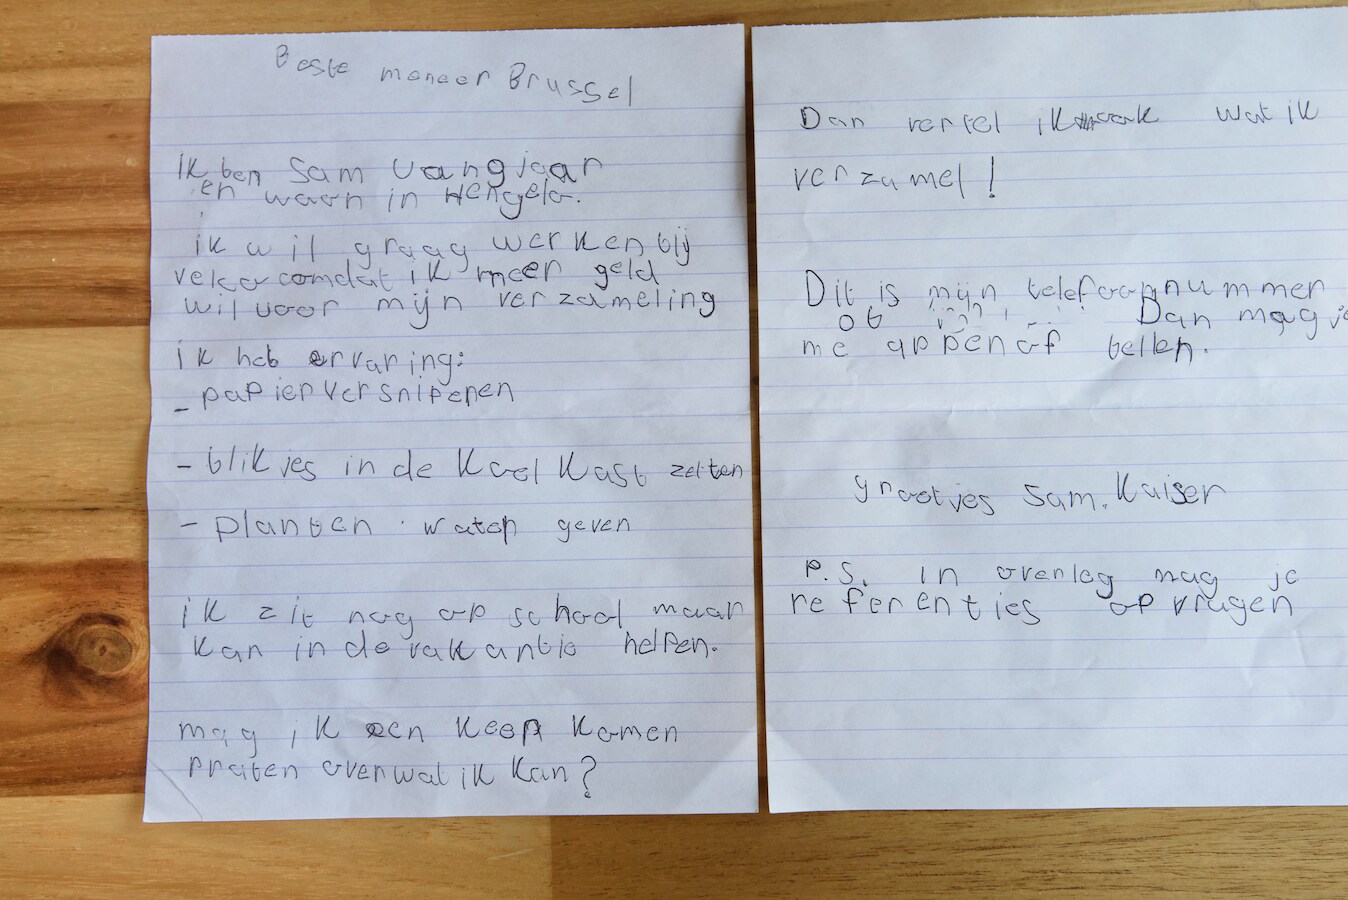 Beste meneer Brussel
ik ben Sam van 9 jaar
en woon in Hengelo.
ik wil graag werken bij
omdat ik meer geld
wil voor mijn verzameling
ik heb ervaring:
- papier versnipenen
- blikjes in de koelkast zetten
- planten water geven
ik zit nog op school maar
kan in de vakantie helpen.
mag ik een keer komen
praten over wat ik kan?
Dan vertel ik ook wat ik
verzamel!
Dit is mijn telefoonnummer
06 Dan mag je
me appen of bellen.
groetjes Sam. Kaiser
P.S. in overleg mag je
referenties opvragen